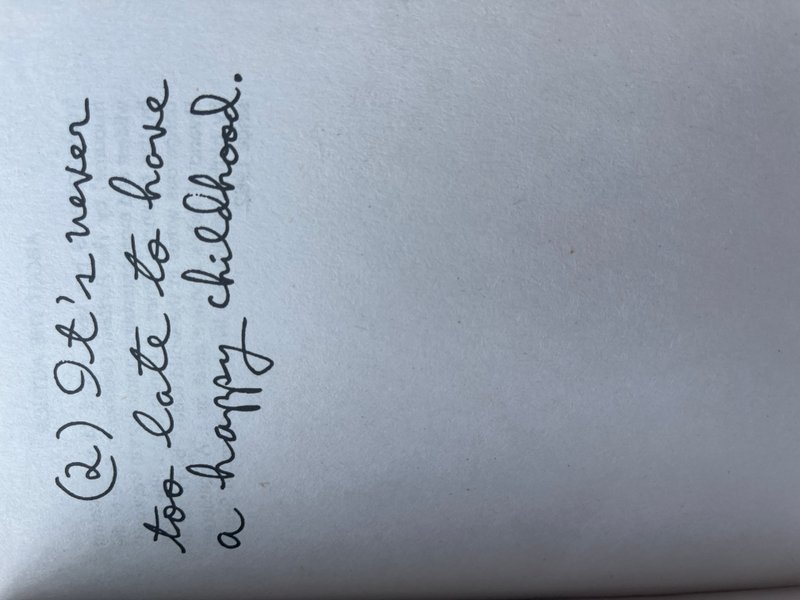 (2) It's never
too late to have
a happy childhood.